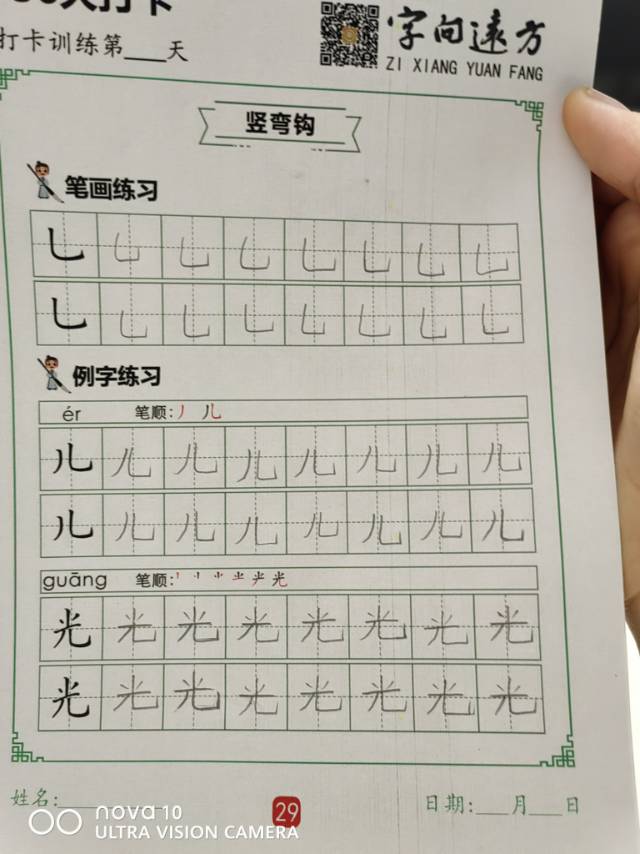 天打卡
字向远方
打卡训练第___天
ZI XIANG YUAN FANG
竖弯钩
笔画练习
乚 乚 乚 乚 乚 乚 乚 乚
乚 乚 乚 乚 乚 乚 乚 乚
例字练习
ér 笔顺:丿 儿
儿 儿 儿 儿 儿 儿 儿 儿
儿 儿 儿 儿 儿 儿 儿 儿
guāng 笔顺: 光
光 光 光 光 光 光 光 光
光 光 光 光 光 光 光 光
姓名:________
29
日期:___月___日
nova 10
ULTRA VISION CAMERA